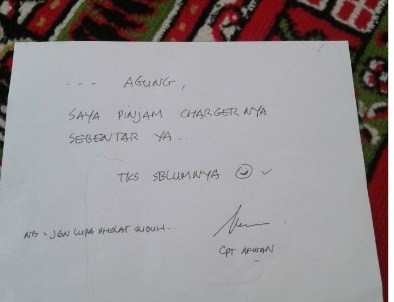 --- AGUNG,
SAYA PINJAM CHARGERNYA
SEBENTAR YA...
TKS SBLUMNYA ☺ ✓
NB = JGN LUPA SHOLAT SUBUH...
CPT AFWAN